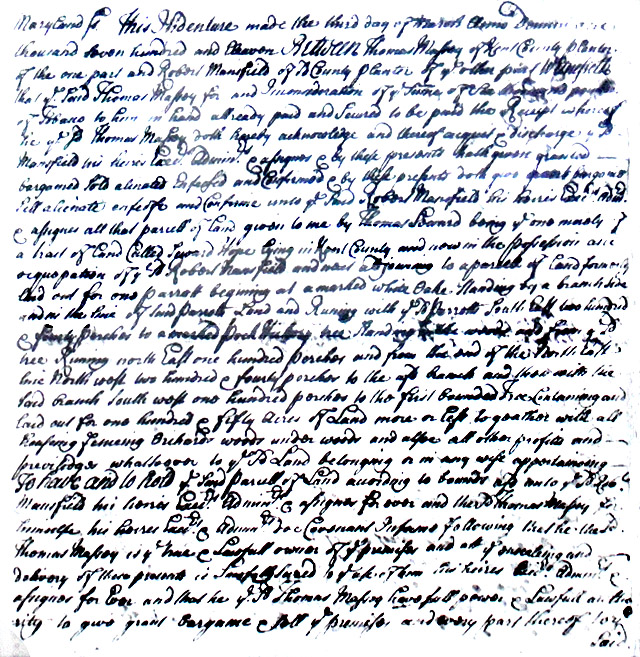 Maryland ss. This Indenture made the third day of March Anno Domini one
thousand seven hundred and Eleaven Between Thomas Massey of Kent County planter
of the one part and Robert Mansfield of sd County planter of ye other part Witnesseth
that ye said Thomas Massey for and in consideration of ye sume of thousand pounds
of Tobaco to him in hand allready paid and secured to be paid the Receipt whereof
he ye sd Thomas Massey doth hereby acknowledge and thereof acquit & discharge ye sd
Mansfield his heires Execrs Adminrs & assignes & by these presents hath given granted
bargained sold alienated Enfeofed and Confirmed & by these presents doth give grant bargaine
sell alienate enfeofe and Confirme unto ye said Robert Mansfield his heires Execrs Admrs
& assignes all that parcell of Land given to me by Thomas Seward being ye one moiety of
a tract of Land Called Seward Hope lying in Kent County and now in the possession and
ocquopation of ye sd Robert Mansfield and next adjoyning to a parcell of Land formerly
laid out for one Parrott begining at a marked white Oake standing by a branch side
and in the line of said Parrotts Land and Runing with ye sd Parrotts South East two hundred
& fourty perches to a marked Pock Hickory tree standing the woods and from ye sd
tree Runing north East one hundred perches and from the end of the North East
line North west two hundred & fourty perches to the sd branch and then with the
said branch South west one hundred perches to the first bounded tree Containing and
laid out for one hundred & fifty acres of Land more or less to geather with all
housing fenceing Orchards woods under woods and allso all other profits and
priveledges whatsoever to ye sd Land belonging or in any wise appertaining
To have and to hold ye said Parcell of Land according to bounds unto ye sd Robt
Mansfield his heires Execrs Adminrs & assignes for ever and the sd Thomas Massey for
himselfe his heires Execrs & Adminrs doe Covenant Informe following that he the sd
Thomas Massey is ye true & Lawfull owner of ye premises and att ye ensealing and
delivery of these presents is Lawfully to ye use of him his heires Execrs Adminrs
assignes for Ever and that he ye sd Thomas Massey have full power & Lawfull autho
rity to give grant bargaine & sell ye premises and every part thereof to ye
said